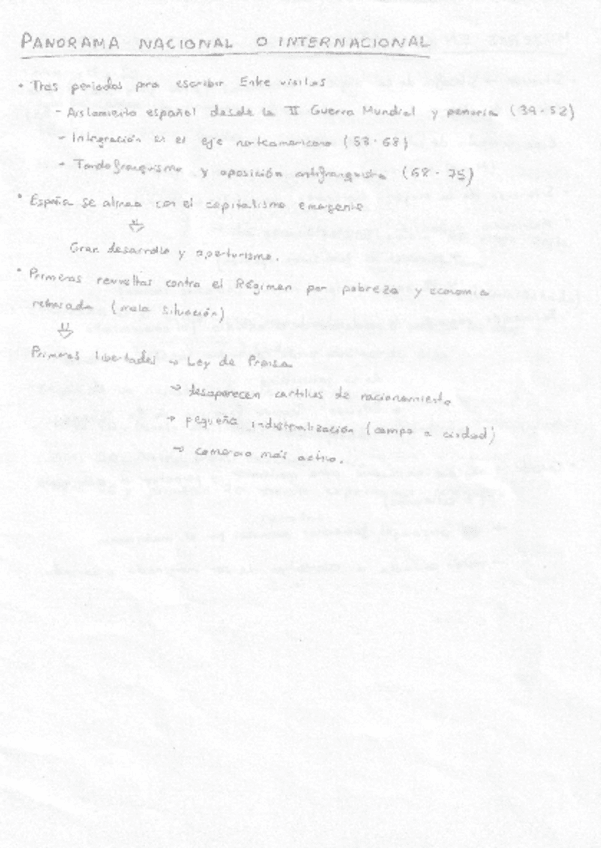 PANORAMA NACIONAL O INTERNACIONAL
• Tras periodos para escribir Entre visillos
- Aislamiento español desde la II Guerra Mundial y penuria (39-52)
- Integración en el eje norteamericano (53-68)
- Tardofranquismo y oposición antifranquista (68-75)
• España se alinea con el capitalismo emergente
⇓
Gran desarrollo y aperturismo.
• Primeras revueltas contra el Régimen por pobreza y economía
retrasada (mala situación)
⇓
Primeras libertades → Ley de Prensa
→ desaparecen cartillas de racionamiento
→ pequeña industralización (campo a ciudad)
→ comercio más activo.